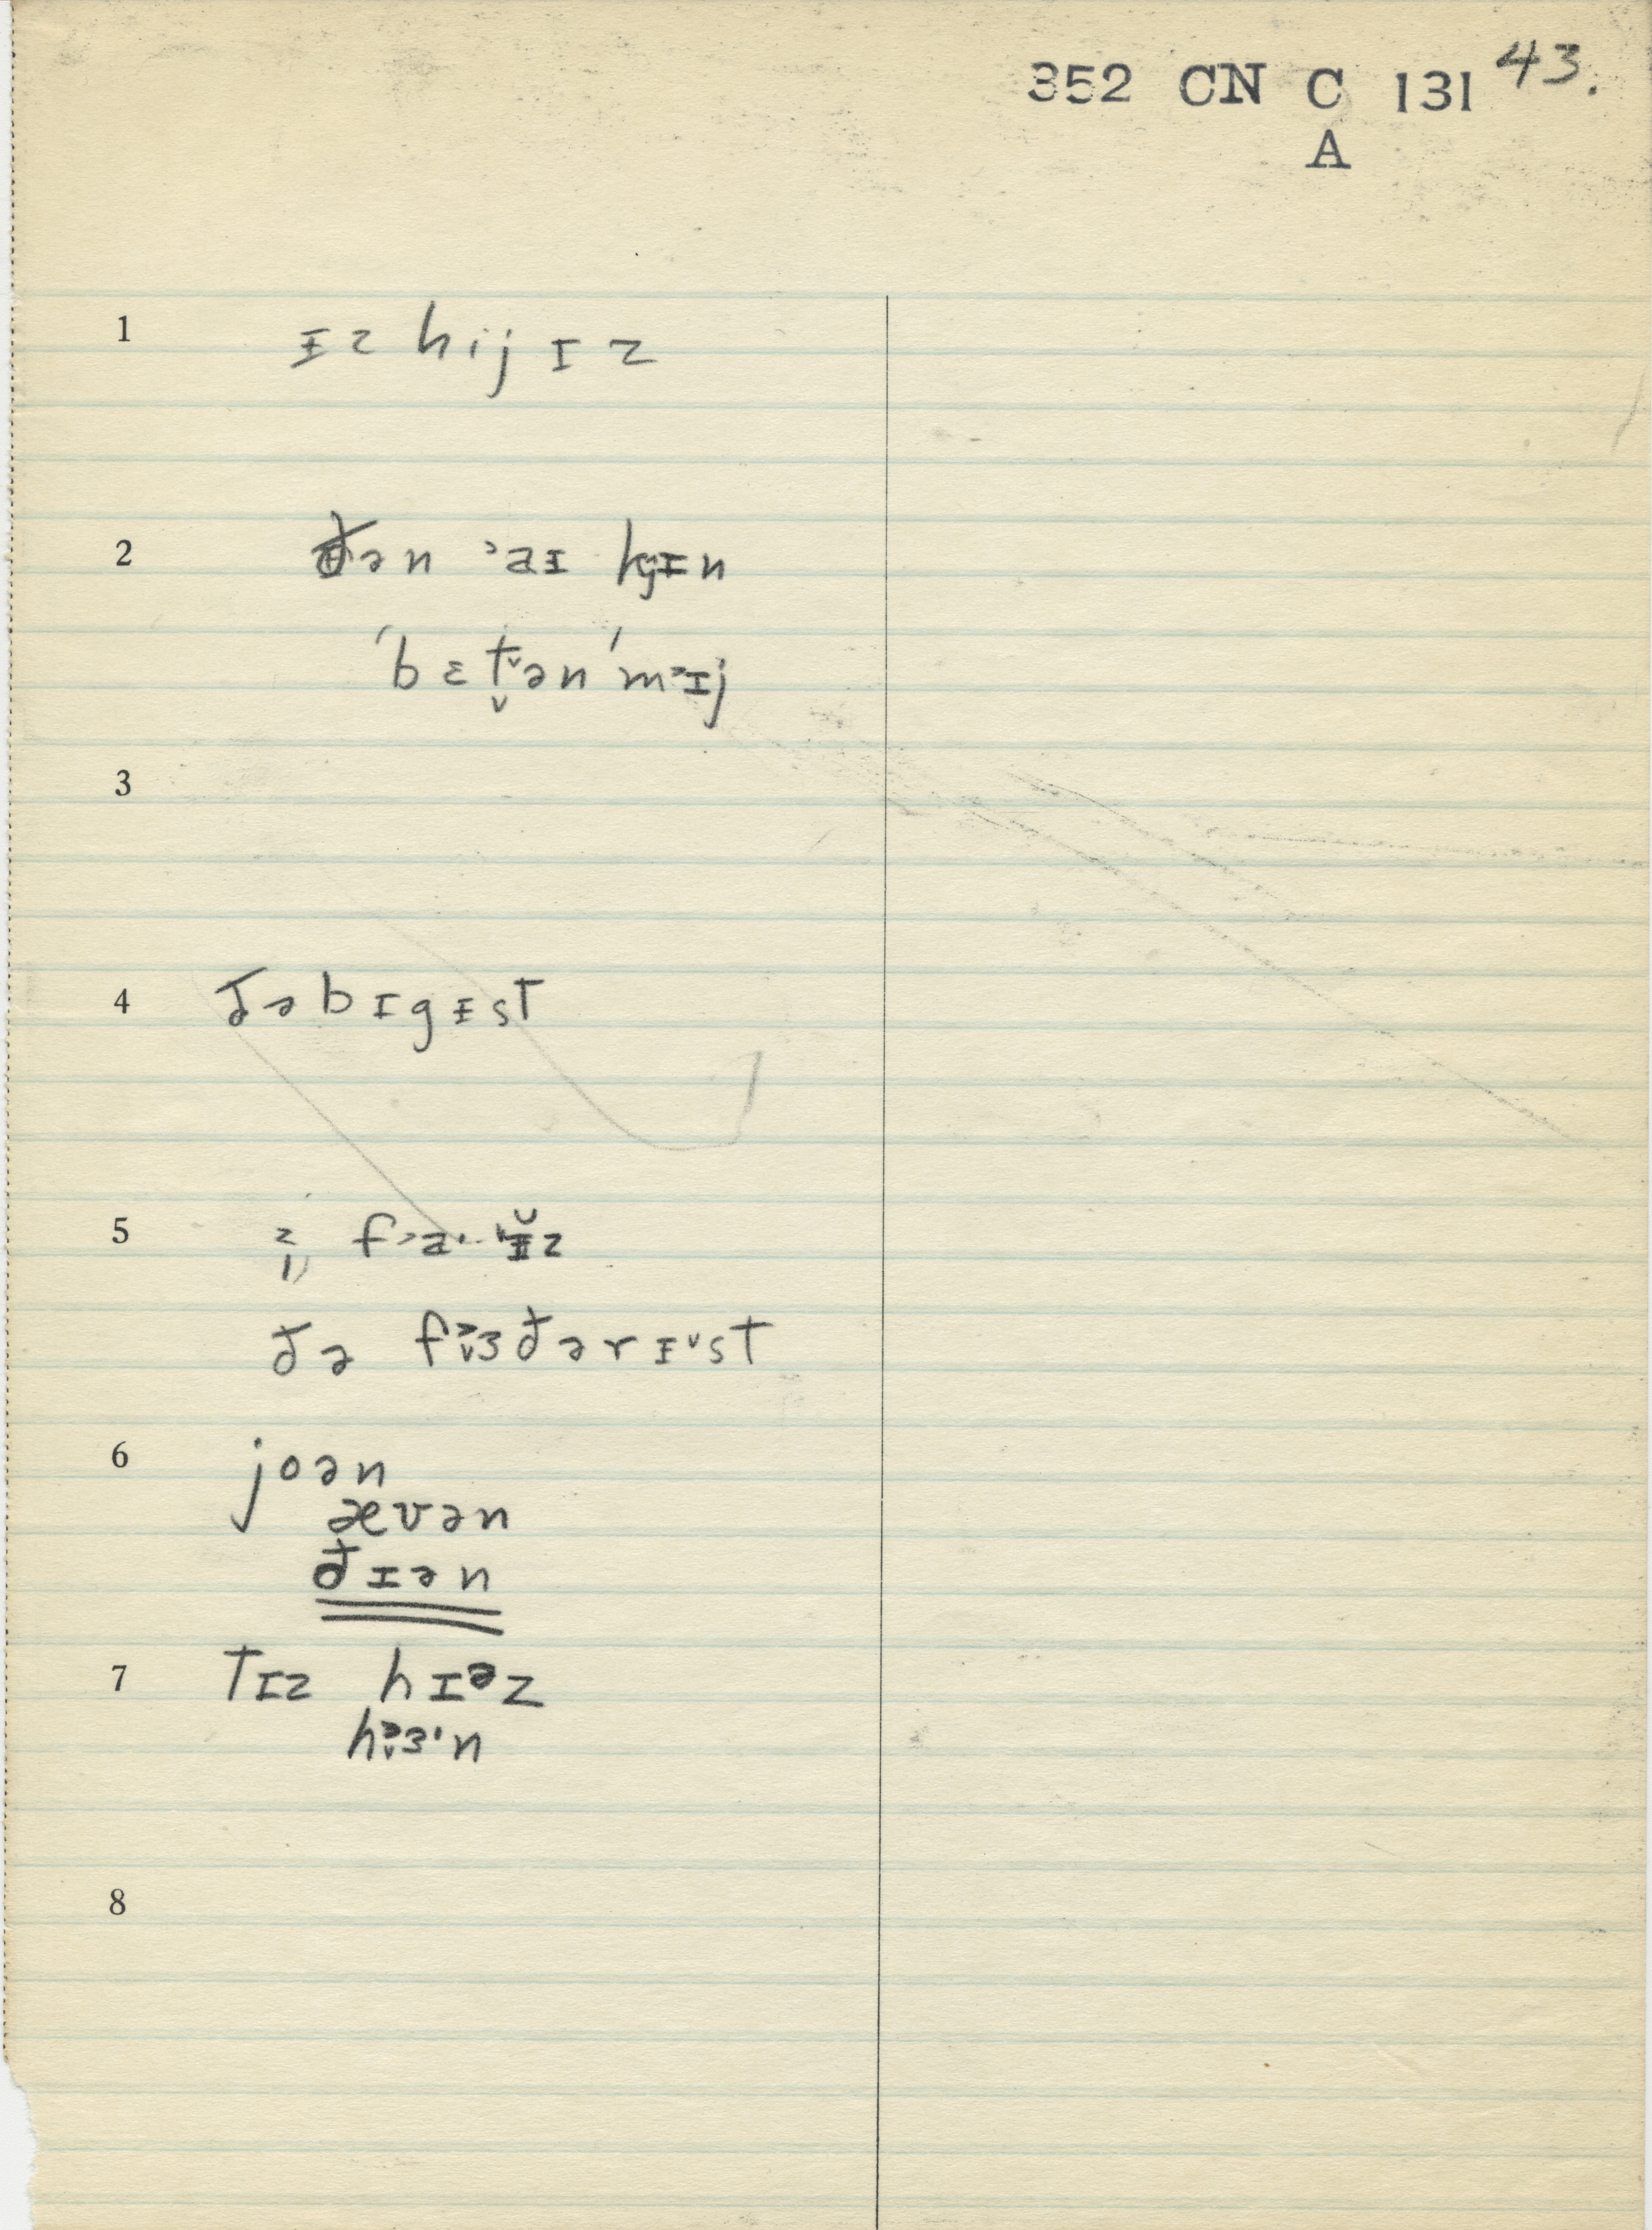 352 CN C 131 43.
A
1 ɪz hij ɪ z
2 ðən ˃aɪ kjɪn
ˈbɛt̬ən ˈm˃ɪj
3
4 ðəbɪgɪst
5
ðə f˃̬ɜðərɪ˅st
6 joən
ævən
ðɪən
7 tɪz hɪəz
h˃̬ɜˑn
8